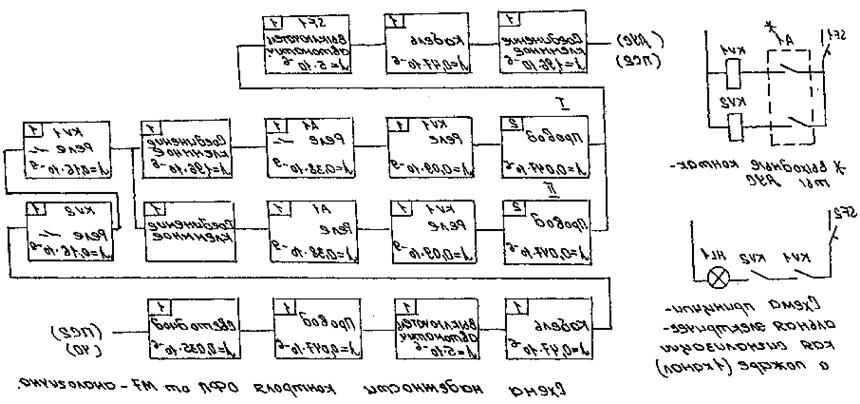 SF1
A1
*
KV1
KV2
* Выходные контак-
ты ДУС
SF2
KV1 KV2 HL1
Схема принципи-
альная электричес-
кая сигнализации
о пожаре (1 канал)
(ДУС)
(ПС2)
1
Соединение
клеммное
λ=1,96·10⁻⁶
1
Кабель
λ=0,47·10⁻⁶
1
SF1
Выключатель
автоматич
λ=5·10⁻⁶
I
2
Провод
λ=0,047·10⁻⁶
1
KV1
Реле
λ=0,09·10⁻⁹
1
A1
Реле
λ=0,38·10⁻⁹
1
Соединение
клеммное
λ=1,96·10⁻⁶
1
KV1
Реле
λ=0,16·10⁻⁹
II
2
Провод
λ=0,047·10⁻⁶
1
KV1
Реле
λ=0,09·10⁻⁹
1
A1
Реле
λ=0,38·10⁻⁹
1
Соединение
клеммное
1
KV2
Реле
λ=0,16·10⁻⁹
1
Кабель
λ=0,47·10⁻⁶
1
Выключатель
автоматич
λ=5·10⁻⁶
1
Провод
λ=0,047·10⁻⁶
1
Светодиод
λ=0,035·10⁻⁶
(ПС2)
Схема надежности контроля ОФП от М7 - аналогична.